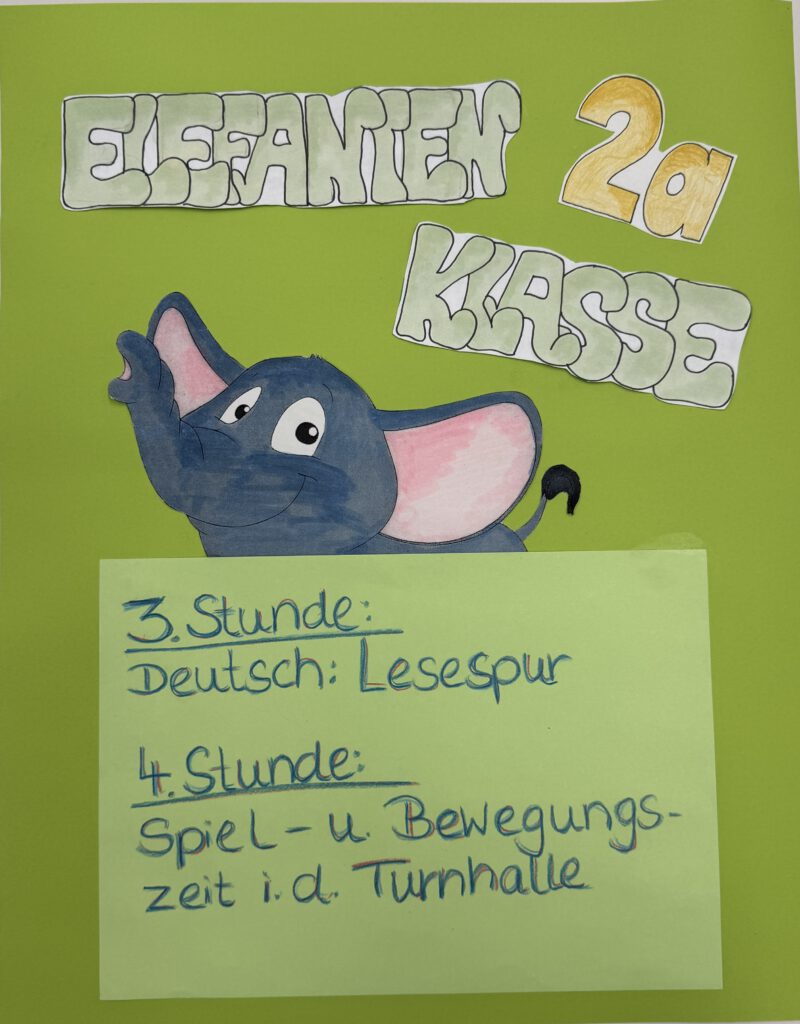 ELEFANTEN 2a
KLASSE
3. Stunde:
Deutsch: Lesespur
4. Stunde:
Spiel- u. Bewegungs-
zeit i. d. Turnhalle